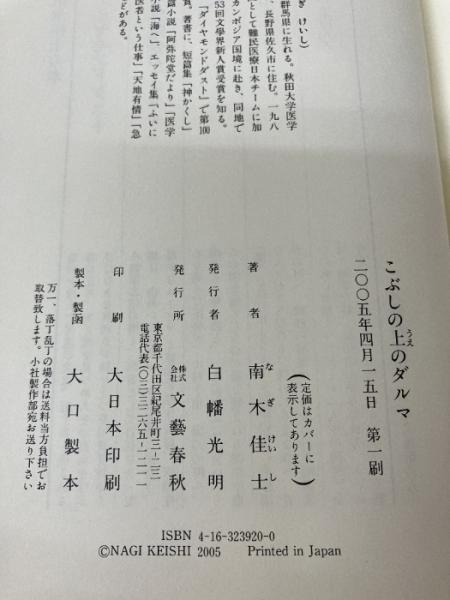 ぎ けいし)
群馬県に生れる。秋田大学医学
、長野県佐久市に住む。一九八
として難民医療日本チームに加
カンボジア国境に赴き、同地で
53回文學界新人賞受賞を知る。
「ダイヤモンドダスト」で第100
賞。著書に、短篇集「神かくし」
篇小説「阿弥陀堂だより」「医学
小説「海へ」、エッセイ集「ふいに
医者という仕事」「天地有情」「急
どがある。
こぶしの上のダルマ
うえ
二〇〇五年四月一五日 第一刷
(定価はカバーに
表示してあります)
著者 南木佳士
なぎけいし
発行者 白幡光明
発行所 株式会社 文藝春秋
東京都千代田区紀尾井町三−二三
電話代表(〇三)三二六五−一二一一
印刷 大日本印刷
製本・製函 大口製本
万一、落丁乱丁の場合は送料当方負担でお
取替致します。小社製作部宛お送り下さい
ISBN 4-16-323920-0
©NAGI KEISHI 2005 Printed in Japan